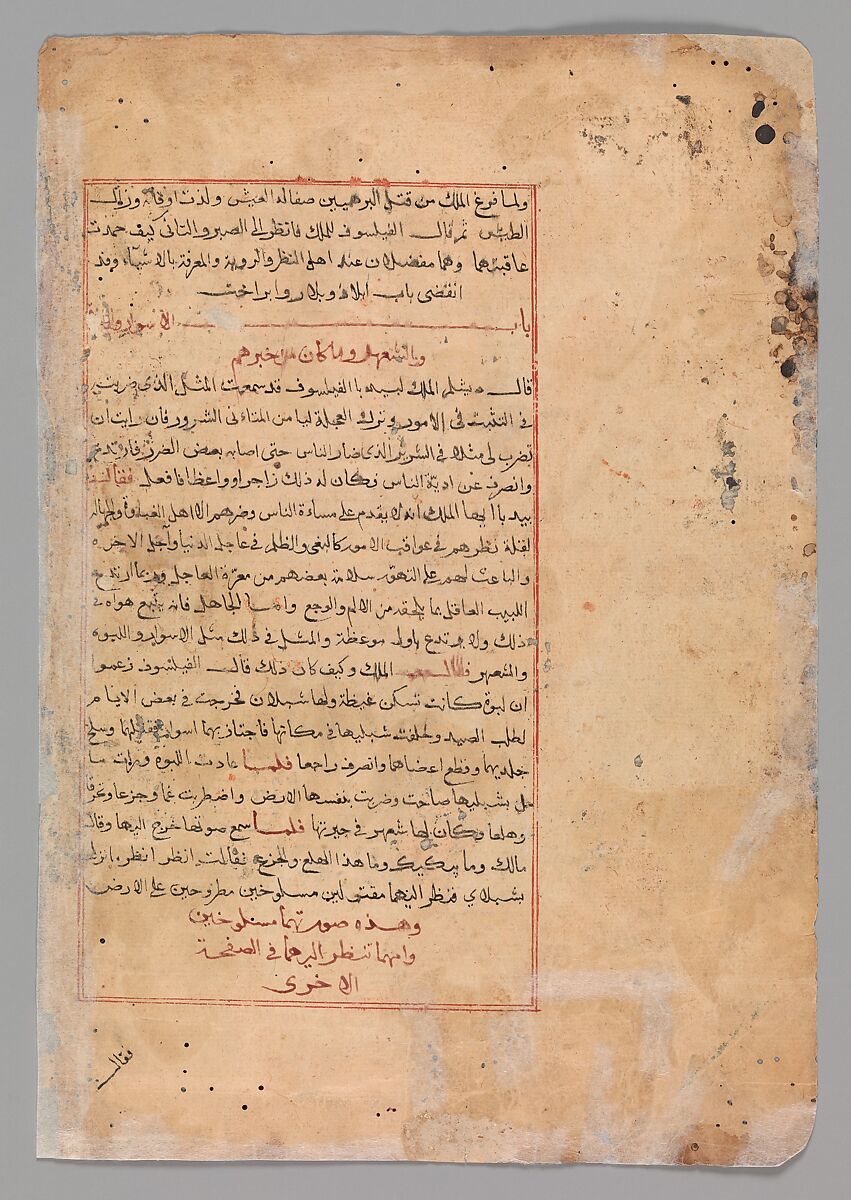 ولما فرغ الملك من قتل البرهميين صفا له العيش ولذت اوقاته وزال
الطيش ثم قال الفيلسوف للملك فانظر الى الصبر والتانى كيف حمدت
عاقبتهما وهما مفضلان عند اهل النظر والروية والمعرفة بالاشياء وقد
انقضى باب ابلاد وبلار وابراخت
باب الاسوار واللبوة
والشعهر وما كان من خبرهم
قال دبشلم الملك لبيدبا الفيلسوف قد سمعت المثل الذى ضربت
فى التثبت فى الامور وترك العجلة فيها من المتانى الشرور فان رايت ان
تضرب لى مثلا فى الشرير الذى ضار الناس حتى اصابه بعض الضرر فارتدع
وانصرف عن اذية الناس فكان له ذلك زاجرا وواعظا فافعل فقال
بيدبا ايها الملك انه لا يقدم على مساءة الناس وضرهم الا اهل الغباوة والجهالة
لقلة نظرهم فى عواقب الامور كالبغى والظلم فى عاجل الدنيا وآجل الاخره
والباعث لهم على التهور سلامة بعضهم من معرة العاجل وربما ارتدع
اللبيب العاقل بما يلحقه من الالم والوجع واما الجاهل فانه يتبع هواه فى
ذلك ولا يرتدع باول موعظة والمثل فى ذلك مثل الاسوار واللبوه
والشعهر قال الملك وكيف كان ذلك قال الفيلسوف زعموا
ان لبوة كانت تسكن غيظة ولها شبلان فخرجت فى بعض الايام
لطلب الصيد وخلفت شبليها فى مكانها فاجتاز بهما اسوار فقتلهما وسلخ
جلديهما وقطع اعضاهما وانصرف راجعا فلما عادت اللبوة ورات ما
حل بشبليها صاحت وضربت بنفسها الارض واضطربت غما وجزعا وتحرقا
وهلعا وكان لها شعهر فى جيرتها فلما سمع صوتها خرج اليها وقال
مالك وما يبكيك وما هذا الهلع والجزع فقالت انظر انظر ما نزل
بشبلاي فنظر اليهما مقتولين مسلوخين مطروحين على الارض
وهذه صورتهما مسلوخين
وامهما تنظر اليهما فى الصفحة
الاخرى
فقال